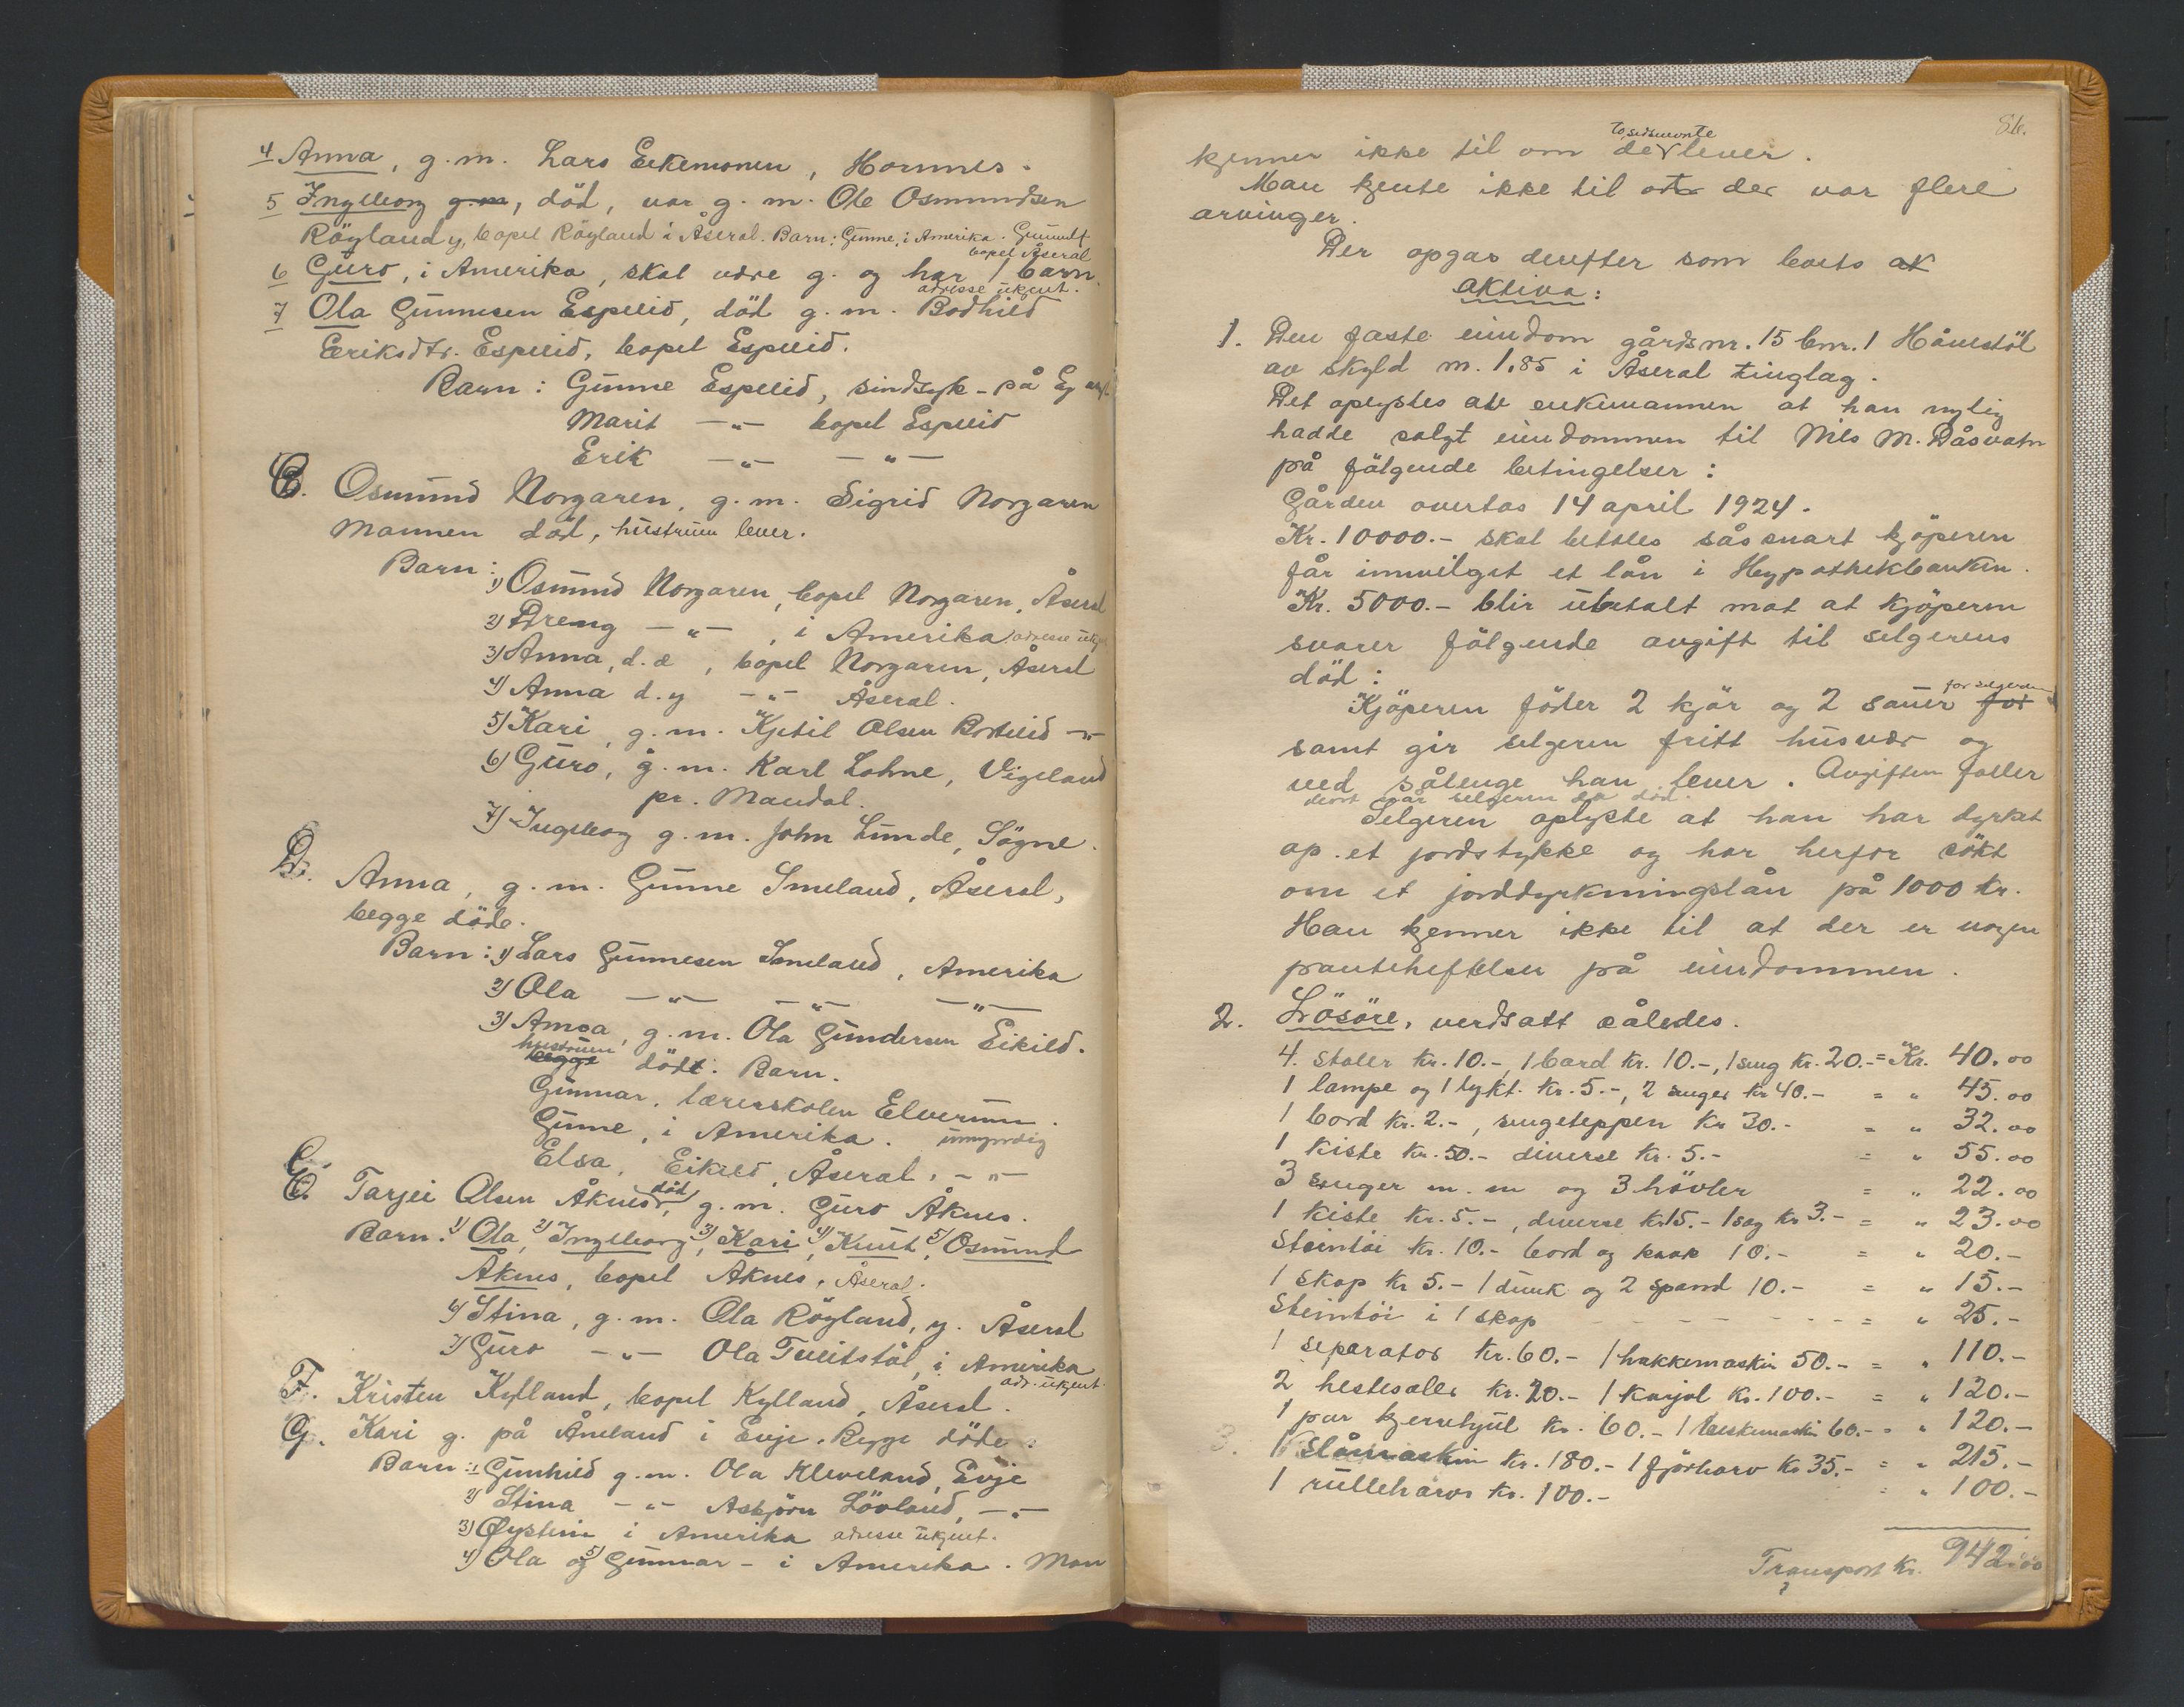 4 Anna, g.m. Lars Eikemonen, Hornnes.
5 Ingeborg g.m, död, var g.m. Ole Osmundsen
Röyland y, bopel Röyland i Åseral. Barn: Gunne, i Amerika. Gunnulf
bopel Åseral
6 Guro, i Amerika, skal være g. og har 1 barn.
adresse ukjent.
7 Ola Gunnesen Espelid, död g.m. Bodhild
Eeriksdtr. Espelid, bopel Espelid.
Barn: Gunne Espelid, sindsyk - på Eg asyl
Marit —„— bopel Espelid
Erik —„— —„—
B. Osmund Norgaren, g.m. Sigrid Norgaren
Mannen död, hustruen lever.
Barn:
1) Osmund Norgaren, bopel Norgaren, Åseral
2) Dreng —„—, i Amerika adresse ukj.
3) Anna, d.e, bopel Norgaren, Åseral
4) Anna d.y —„— Åseral.
5) Kari, g.m. Kjetil Olsen Bortelid —„—
6) Guro, g.m. Karl Lohne, Vigeland
pr. Mandal.
7) Ingeborg g.m. John Lunde, Sögne.
D. Anna, g.m. Gunne Smeland, Åseral,
begge döde.
Barn: 1) Lars Gunnesen Smeland, Amerika
2) Ola —„— —„— —„—
3) Amoa, g.m. Ola Gundersen Eikild.
hustruen
begge död: Barn.
Gunnar, lærerskolen Elverum.
Gunne, i Amerika. umyndig
Elsa, Eikild, Åseral, —„—
E. Tarjei Olsen Åknes, död g.m. Guro Åknes.
Barn: 1) Ola, 2) Ingeborg, 3) Kari, 4) Knut, 5) Osmund
Åknes, bopel Åknes, Åseral.
6) Stina, g.m. Ola Röyland, y. Åseral
7) Guro —„— Ola Tveitstöl, i Amerika
adr. ukjent.
F. Kristen Kylland, bopel Kylland, Åseral.
G. Kari g. på Åneland i Evje. Begge döde.
Barn: 1 Gunhild g.m. Ola Kleveland, Evje
2) Stina —„— Asbjörn Lövland, —„—
3) Øystein i Amerika adresse ukjent.
4) Ola og 5) Gunnar - i Amerika. Man
86.
to sidsnevnte
kjenner ikke til om de lever.
Man kjente ikke til at der var flere
arvinger.
Der opgas derefter som boets ak
aktiva:
1. Den faste eiendom gårdsnr. 15 bnr. 1 Håvestöl
av skyld m. 1,85 i Åseral tinglag.
Det oplystes av enkemannen at han nylig
hadde solgt eiendommen til Nils M. Dåsvatn
på fölgende betingelser:
Gården overtas 14 april 1924.
Kr. 10000.- skal betales såssnart kjöperen
får innvilget et lån i Hypothekbanken.
Kr. 5000.- blir ubetalt mot at kjöperen
svarer fölgende avgift til selgerens
död:
Kjöperen föder 2 kjör og 2 sauer for selgeren for
samt gir selgeren fritt husvær og
ved sålenge han lever. Avgiften faller
bort når selgeren er död.
Selgeren oplyste at han har dyrket
op et jordstykke og har herfor sökt
om et jorddyrkningslån på 1000 kr.
Han kjenner ikke til at der er nogen
panteheftelser på eiendommen.
2. Lösöre, verdsatt således.
4. stoler kr. 10.-, 1 bord kr. 10.-, 1 seng kr. 20.- = Kr. 40.00
1 lampe og 1 lykt. kr. 5.-, 2 senger kr 40.- = „ 45.00
1 bord kr. 2.-, sengeteppen kr 30.- = „ 32.00
1 kiste kr. 50.- diverse kr. 5.- = „ 55.00
3 senger m.m og 3 hövler = „ 22.00
1 kiste kr. 5.-, diverse kr. 15.- 1 sag kr 3.- = „ 23.00
Stentöi kr. 10.- bord og krak 10.- = „ 20.-
1 skap kr 5.- 1 dunk og 2 spand 10.- = „ 15.-
Steintöi i 1 skap - - - - - - = „ 25.-
1 separator kr. 60.- 1 hakkemaskin 50.- = „ 110.-
2 hestesaler kr. 20.- 1 karjol kr. 100.- = „ 120.-
1 par kjerrehjul kr. 60.- 1 treskemaskin 60.- = „ 120.-
3. 1 slåmaskin kr. 180.- 1 fjörharv kr 35.- = „ 215.-
1 rulleharv kr. 100.- = „ 100.-
Transport kr. 942.00